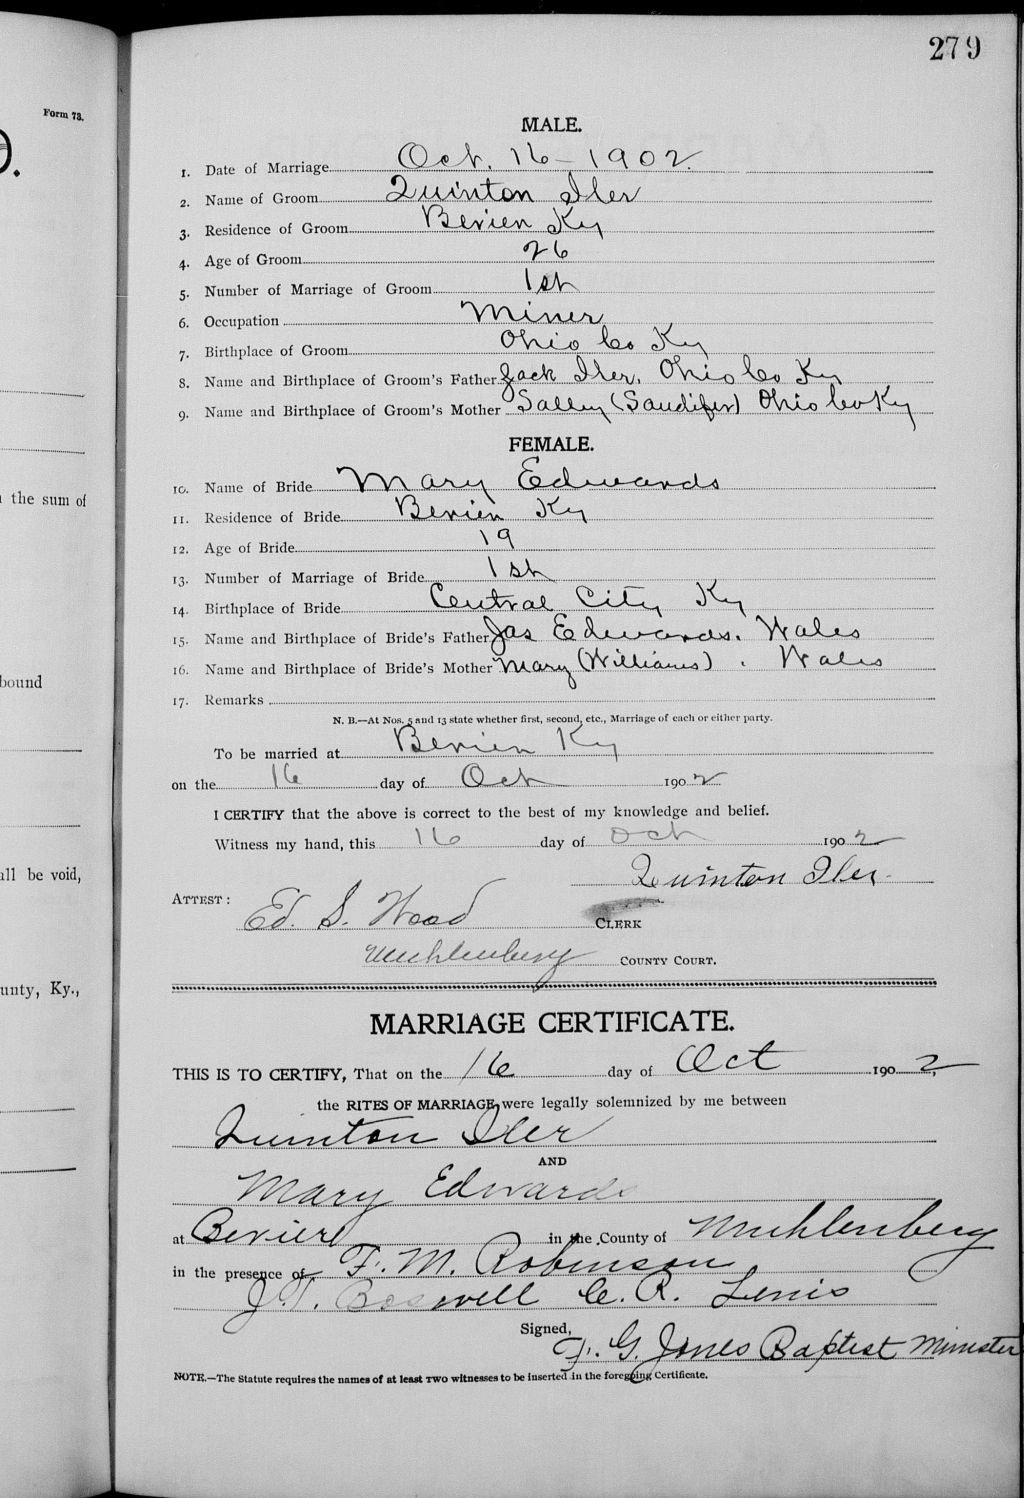 279
Form 73.
O.
MALE.
1. Date of Marriage Oct. 16 - 1902.
2. Name of Groom Quinton Iler
3. Residence of Groom Bevier Ky
4. Age of Groom 26
5. Number of Marriage of Groom 1st
6. Occupation Miner
7. Birthplace of Groom Ohio Co Ky
8. Name and Birthplace of Groom's Father Jack Iler, Ohio Co Ky
9. Name and Birthplace of Groom's Mother Salley (Sandifer) Ohio Co Ky
FEMALE.
10. Name of Bride Mary Edwards
11. Residence of Bride Bevier Ky
the sum of
12. Age of Bride 19
13. Number of Marriage of Bride 1st
14. Birthplace of Bride Central City Ky
15. Name and Birthplace of Bride's Father Jas Edwards. Wales
16. Name and Birthplace of Bride's Mother Mary (Williams). Wales
bound
17. Remarks
N. B.—At Nos. 5 and 13 state whether first, second, etc., Marriage of each or either party.
To be married at Bevier Ky
on the 16 day of Oct 1902
I CERTIFY that the above is correct to the best of my knowledge and belief.
Witness my hand, this 16 day of Oct 1902
all be void,
Quinton Iler.
ATTEST: Ed. S. Wood CLERK
Muhlenberg COUNTY COURT.
unty, Ky.,
MARRIAGE CERTIFICATE.
THIS IS TO CERTIFY, That on the 16 day of Oct 1902,
the RITES OF MARRIAGE were legally solemnized by me between
Quinton Iler
AND
Mary Edwards
at Bevier in the County of Muhlenberg
in the presence of F. M. Robinson
J. T. Boswell C. R. Lewis
Signed,
F. G. Jones Baptist Minister
NOTE.—The Statute requires the names of at least TWO witnesses to be inserted in the foregoing Certificate.